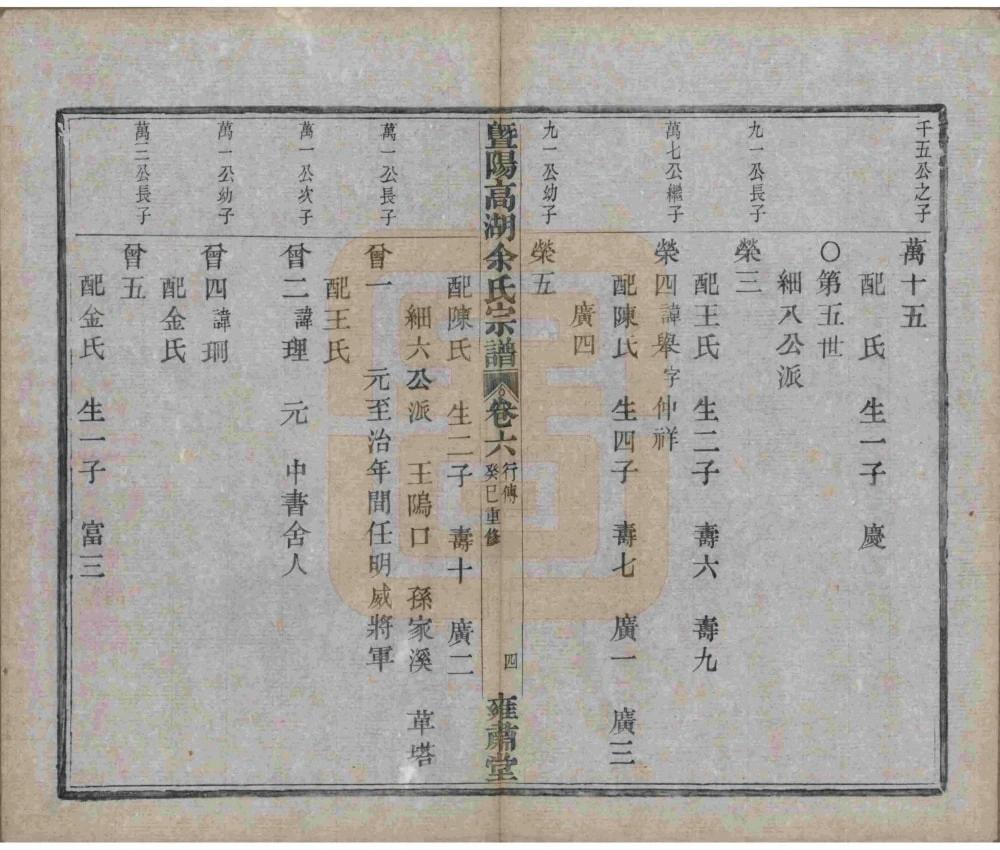 千五公之子
萬十五
配　氏　生一子　慶
〇第五世
細八公派
九一公長子
榮三
配王氏　生二子　壽六　壽九
萬七公繼子
榮四諱舉字仲祥
配陳氏　生四子　壽七　廣一　廣三
廣四
九一公幼子
榮五
配陳氏　生二子　壽十　廣二
細六公派　王隖口　孫家溪　草塔
暨陽高湖余氏宗譜　卷六　行傳　癸巳重修　四　雍肅堂
萬一公長子
曾一　元至治年間任明威將軍
配王氏
萬一公次子
曾二諱理　元　中書舍人
萬一公幼子
曾四諱琱
配金氏
萬二公長子
曾五
配金氏　生一子　富三